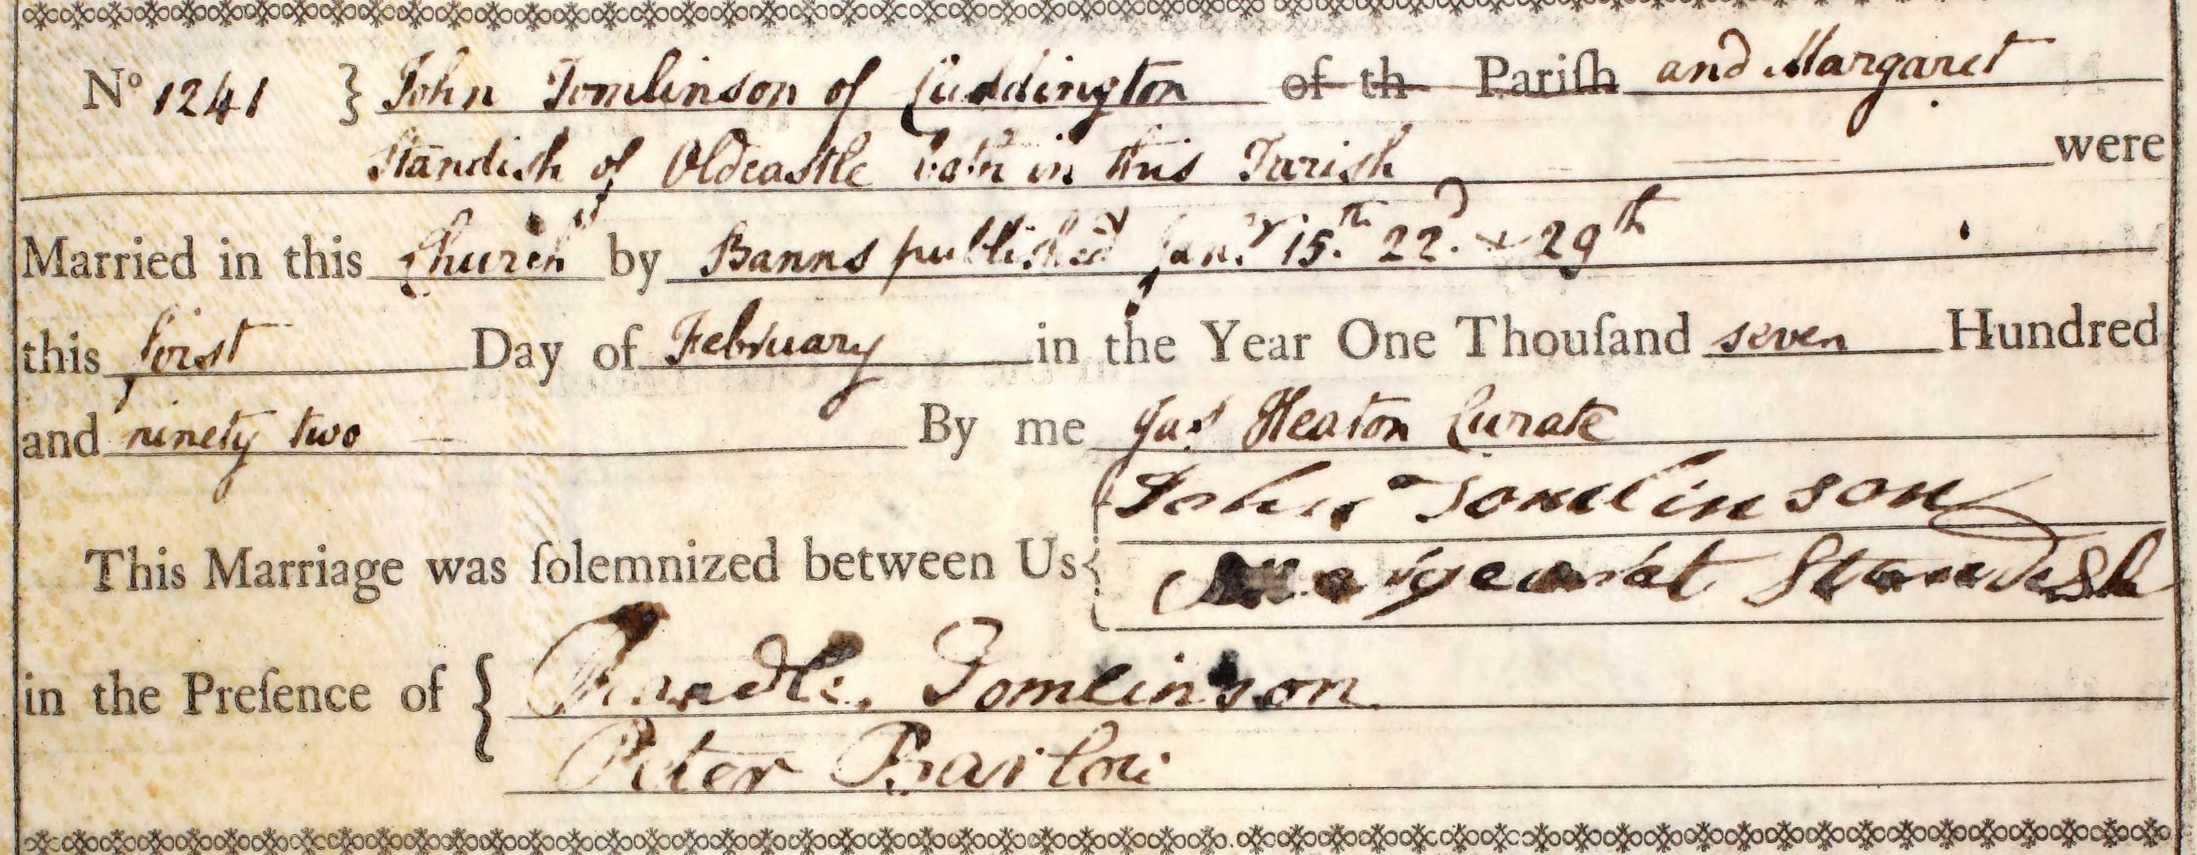 No 1241 } John Tomlinson of Cuddington of th Pariſh and Margaret
Standish of Oldcastle both in this Parish were
Married in this Church by Banns published Jany. 15.th 22.d & 29th
this first Day of February in the Year One Thouſand seven Hundred
and ninety two By me Jas Heaton Curate
John Tomlinson
This Marriage was ſolemnized between Us {
Margearet Standish
in the Preſence of { Randle Tomlinson
Peter Barlow